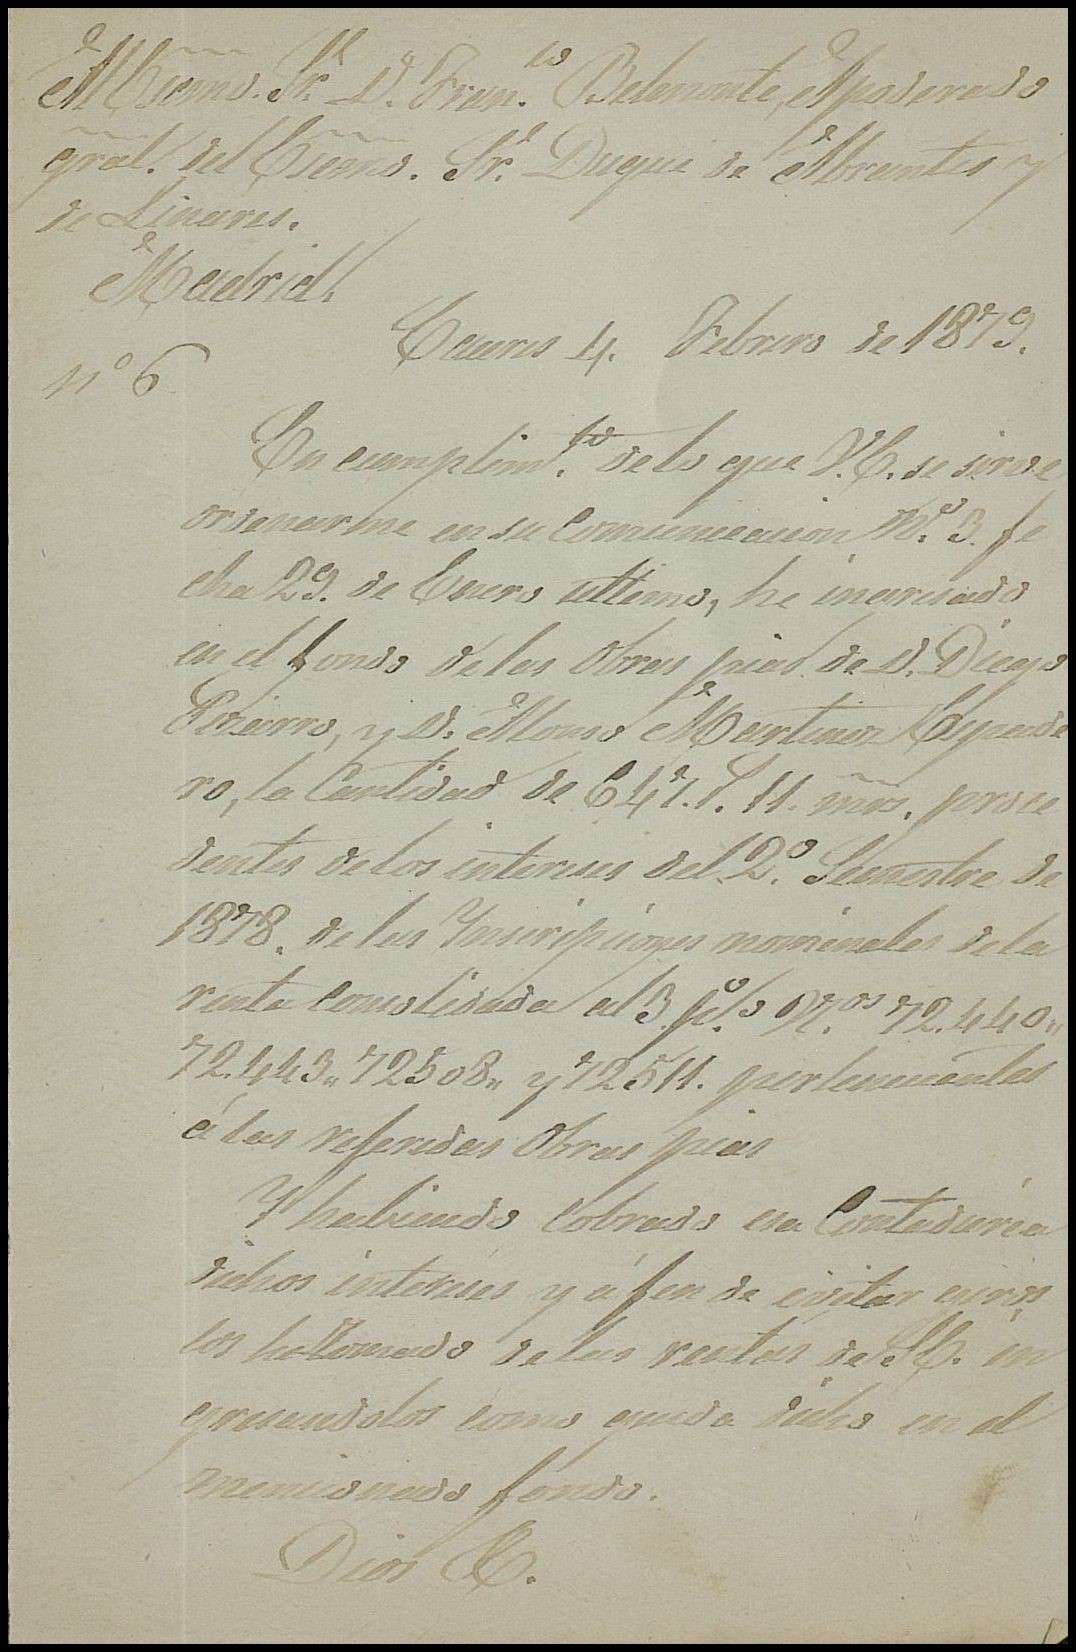 Al Excmo. Sr. D. Fran.co Belmonte, Apoderado
gral. del Excmo. Sr. Duque de Abrantes y
de Linares.
Madrid.
Caceres 4. Febrero de 1879.
nº 6
En cumplim.to de lo que V.E. se sirve
ordenarme en su Comunicacion Nº. 3. fe
cha 29. de Enero ultimo, he ingresado
en el fondo de las Obras pias de D. Diego
Pizarro, y D. Alonso Martinez Espade
ro, la Cantidad de 11. mrs. proce
dentes de los intereses del 2º. Semestre de
1878. de las Inscripciones nominales de la
renta Consolidada al 3 p.% N.os 72.440,,
72.443,, 72508,, y 72511. pertenecientes
á las referidas Obras pias
Y habiendo Cobrado esa Contaduria
dichos intereses y á fin de evitar giros
los he tomado de las rentas de S.E. in
gresandolos como queda dicho en el
mencionado fondo.
Dios &.